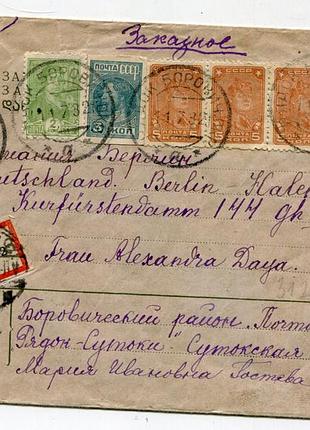 Заказное
ЗА
ЗА
ПОЧТА СССР
КОП
ПОЧТА
СССР
5
5
БОРОВ
Берлин
Deutschland. Berlin Hale
Kurfürstendamm 144 gh
Frau Alexandra Daya.
Боровический район. Почто
Рядок-Сутоки Сутокская
Мария Ивановна Гостева